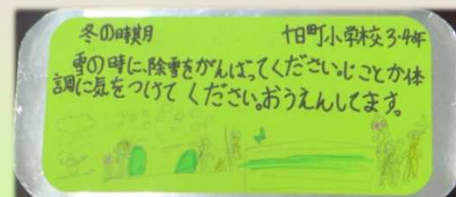 冬の時期 十日町小学校3・4年
雪の時に、除雪をがんばってください。じことか体
調に気をつけてください。おうえんしてます。